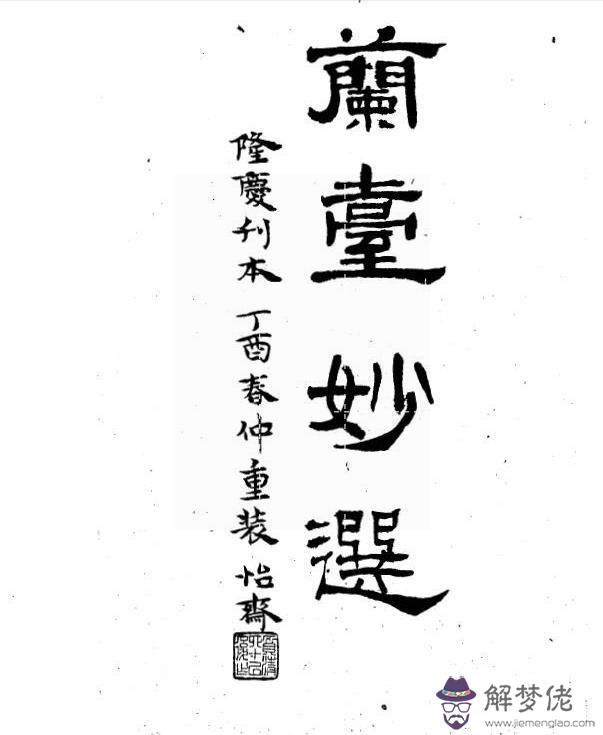 蘭臺妙選
隆慶刊本 丁酉春仲重装 怡齋
解梦佬
www.jiemenglao.com